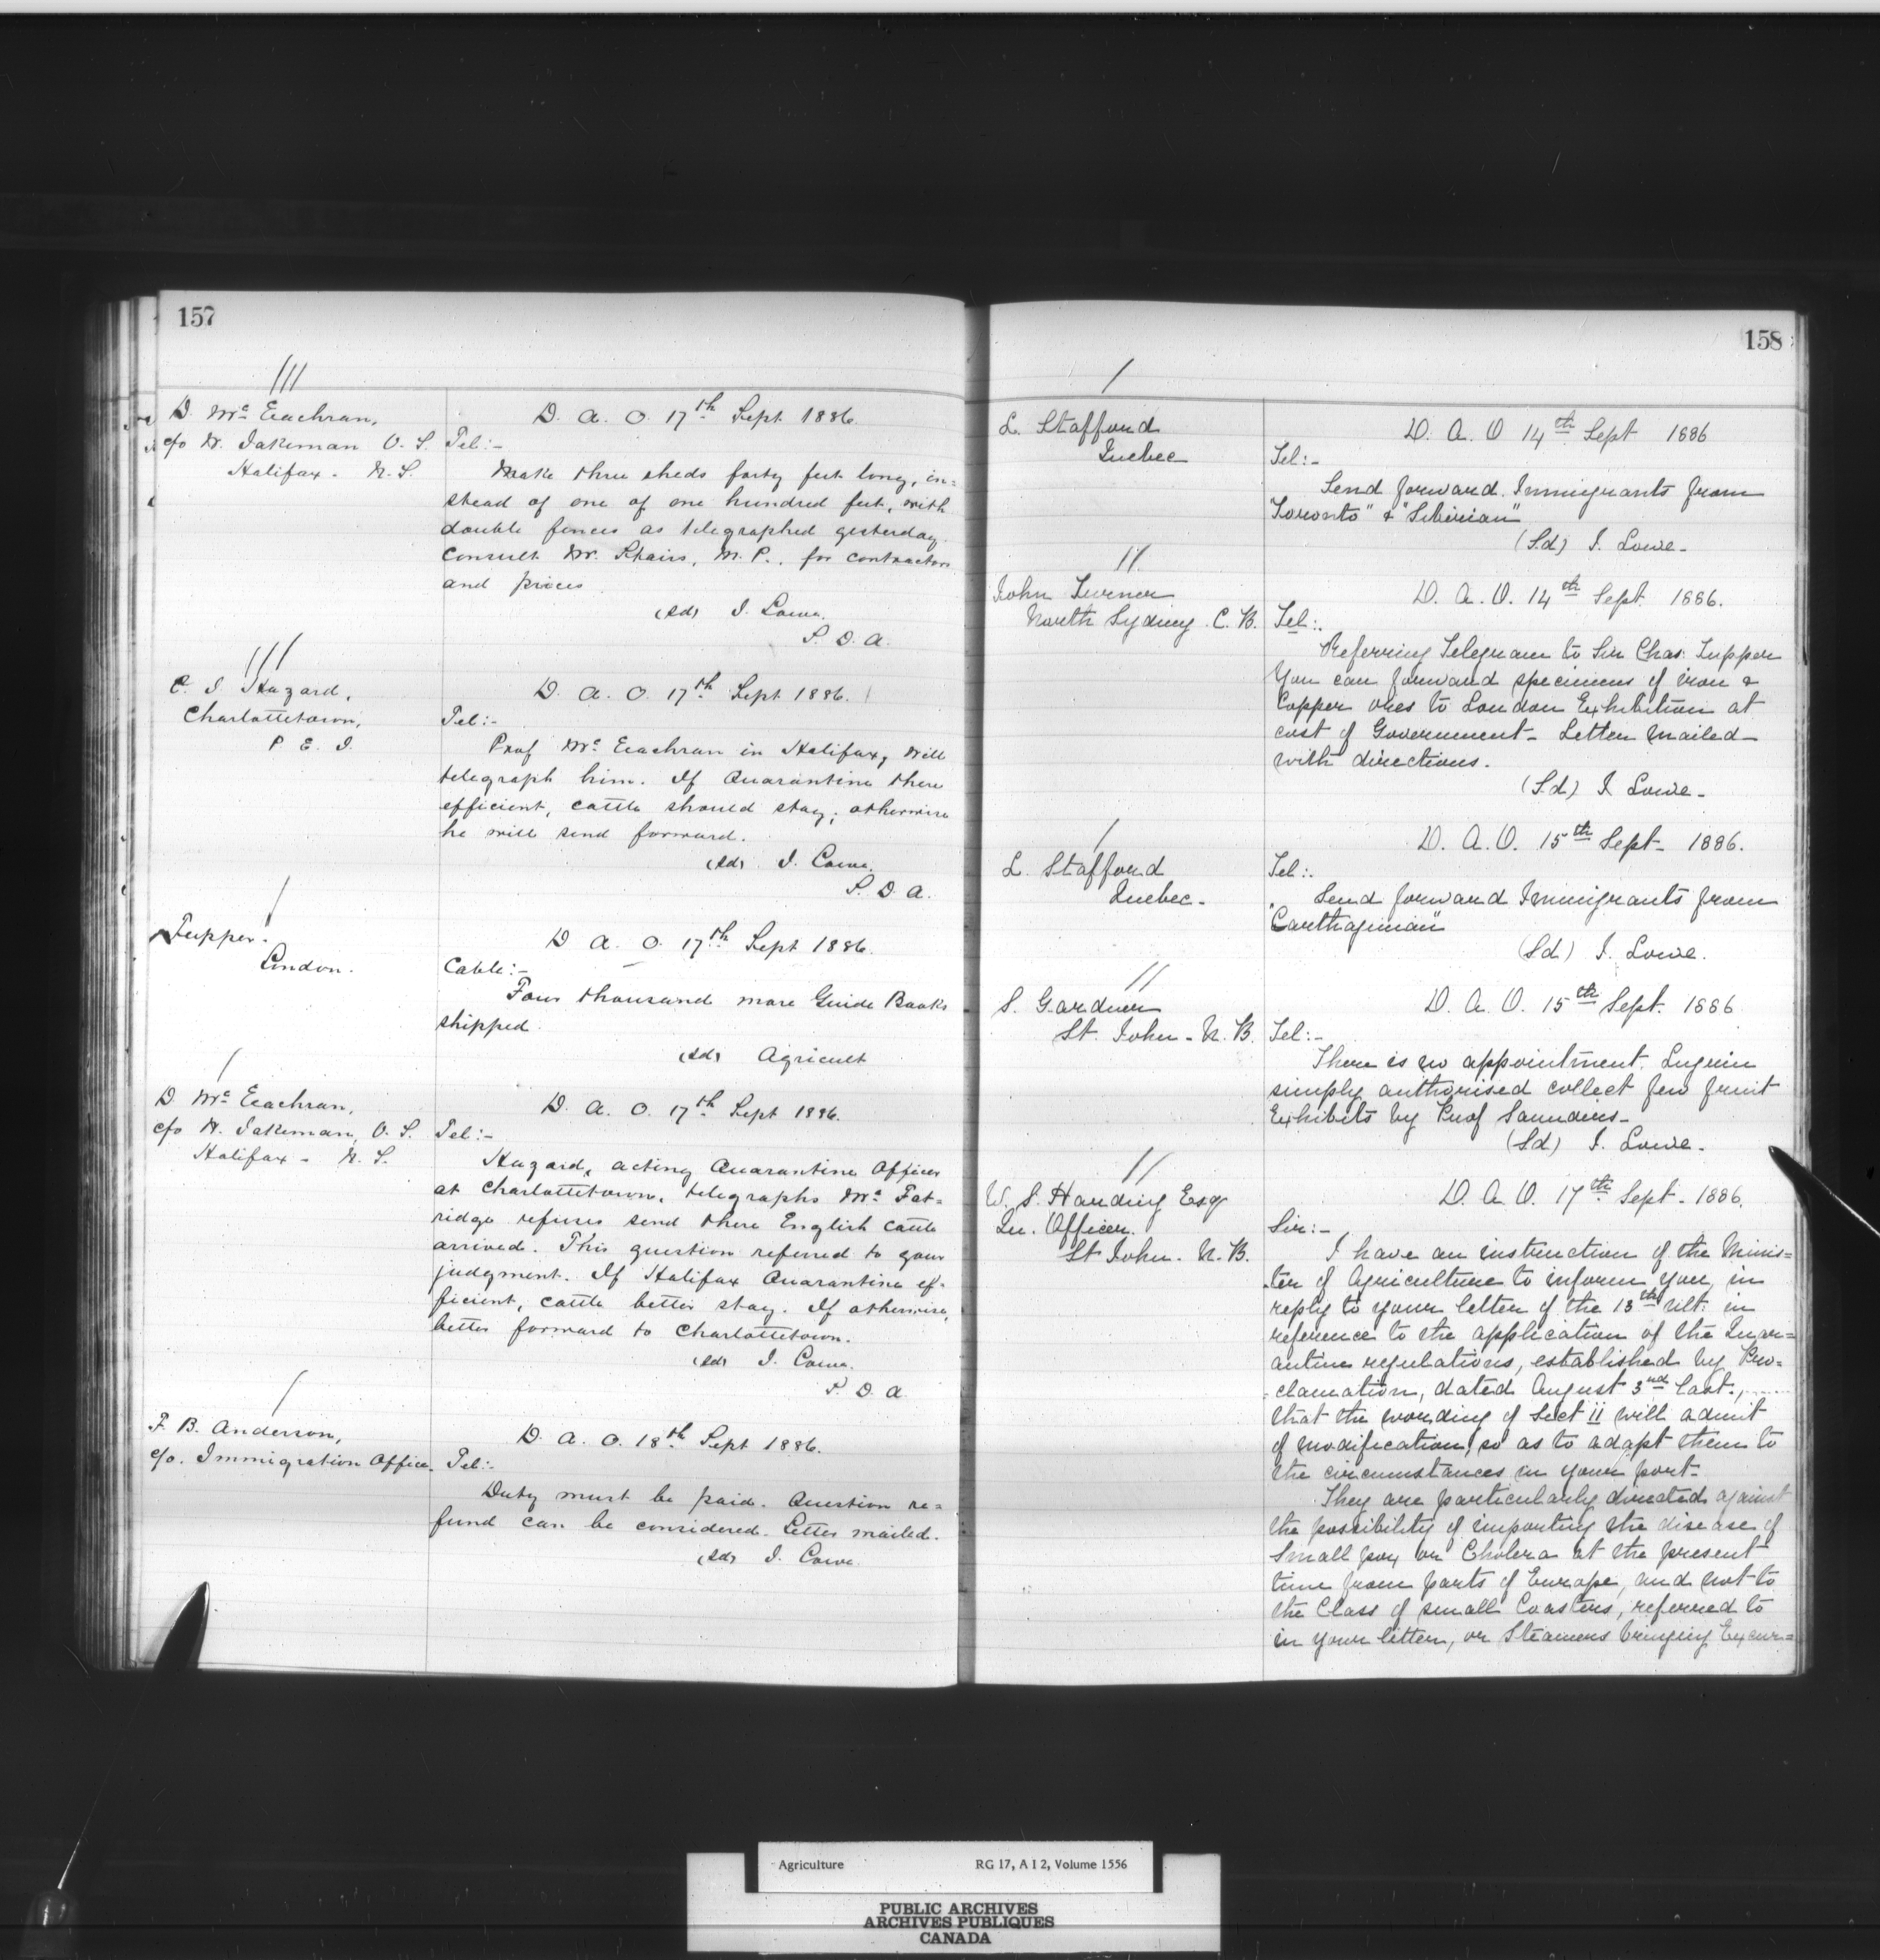 157
III
D. Mc Eachran,
c/o W. Jakeman V. S.
Halifax - N. S.
D. A. O. 17th Sept 1886.
Tel:-
Make three sheds forty feet long, in=
stead of one of one hundred feet, with
double fences as telegraphed yesterday.
Consult Mr. Stairs, M. P., for contractors
and prices
(sd) J. Lowe.
S. D. A.
III
C. J. Hazard,
Charlottetown,
P. E. I.
D. A. O. 17th Sept 1886.
Tel:-
Prof Mc Eachran in Halifax, will
telegraph him. If Quarantine there
efficient, cattle should stay; otherwise
he will send forward.
(sd) J. Lowe.
S. D. A.
I
Tupper.
London.
D. A. O. 17th Sept 1886.
Cable:-
Four thousand more Guide Books
shipped.
(sd) Agricult
I
D. Mc Eachran,
c/o W. Jakeman, V. S.
Halifax - N. S.
D. A. O. 17th Sept 1886.
Tel:-
Hazard, acting Quarantine Officer
at Charlottetown, telegraphs Mc Fat=
ridge refuses send there English cattle
arrived. This question referred to your
judgment. If Halifax Quarantine ef-
ficient, cattle better stay. If otherwise,
better forward to Charlottetown.
(sd) J. Lowe.
S. D. A
I
F. B. Anderson,
c/o. Immigration Office.
D. A. O. 18th Sept 1886.
Tel:-
Duty must be paid. Question re=
fund can be considered. Letter mailed.
(sd) J. Lowe
158
I
L. Stafford
Quebec
D. A. O 14th Sept 1886
Tel:-
Send forward Immigrants from
"Toronto" & "Siberian"
(Sd) J. Lowe-
II
John Turner
North Sydney. C. B.
D. A. O. 14th Sept. 1886.
Tel:-
Referring Telegram to Sir Chas. Tupper
You can forward specimens of iron &
Copper ores to London Exhibition at
cost of Government- Letter mailed-
with directions.
(Sd) J Lowe-
I
L. Stafford
Quebec-
D. A. O. 15th Sept- 1886.
Tel:-
Send forward Immigrants from
"Carthaginian"
(Sd) J. Lowe.
II
S. Gardner
St. John - N. B.
D. A. O. 15th Sept. 1886
Tel:-
There is no appointment.
simply authorised collect few fruit
Exhibits by Prof Saunders-
(Sd) J. Lowe-
II
W. S. Harding Esq
Qu. Officer.
St John. N. B.
D. A. O. 17th Sept- 1886.
Sir:-
I have an instruction of the Minis=
ter of Agriculture to inform you, in
reply to your letter of the 13th ult. in
reference to the application of the Quar=
antine regulations, established by Pro=
clamation, dated August 3nd last.,
that the wording of Sect 11 will admit
of modification, so as to adapt them to
the circumstances in your port-
They are particularly directed against
the possibility of importing the disease of
Small pox or Cholera at the present
time from parts of Europe, and not to
the Class of small Coasters, referred to
in your letter, or Steamers bringing Excur=
Agriculture RG 17, A I 2, Volume 1556
PUBLIC ARCHIVES
ARCHIVES PUBLIQUES
CANADA